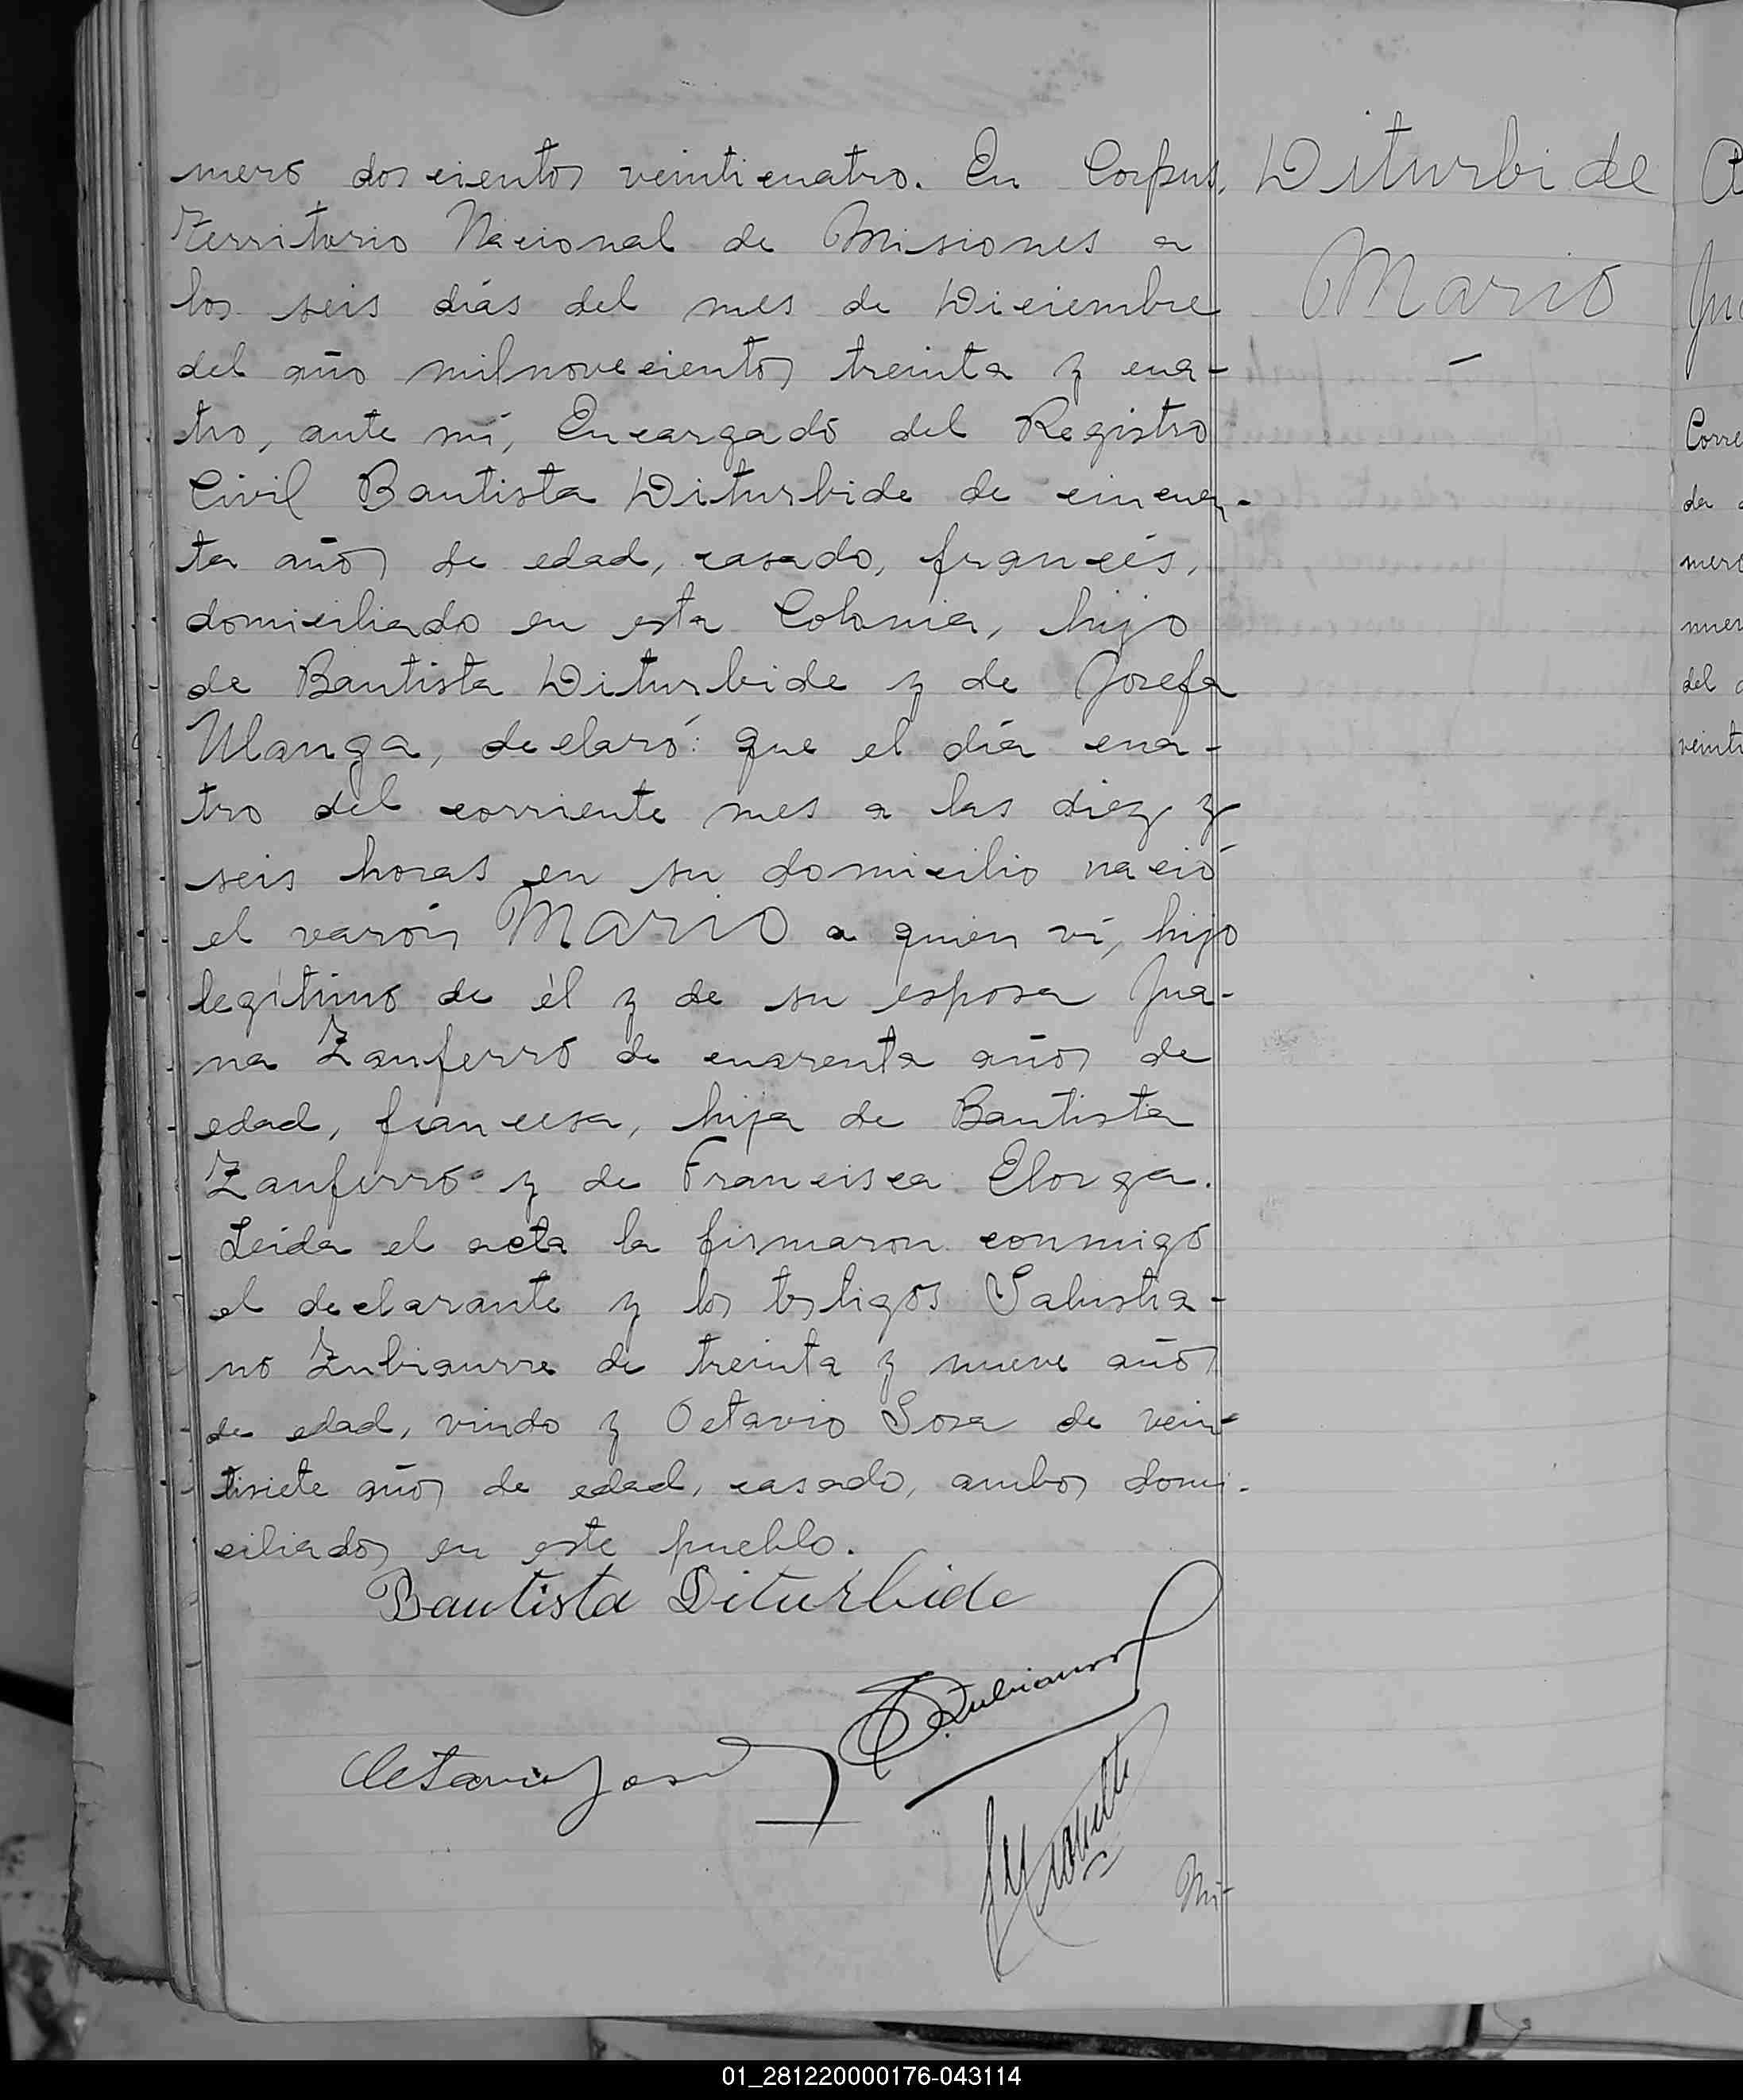 mero doscientos veinticuatro. En Corpus,
Territorio Nacional de Misiones a
los seis días del mes de Diciembre
del año milnovecientos treinta y cua-
tro, ante mí, Encargado del Registro
Civil Bautista Diturbide de cincuen-
ta años de edad, casado, francés,
domiciliado en esta Colonia, hijo
de Bautista Diturbide y de Josefa
Manga, declaró: que el día cua-
tro del corriente mes a las diez y
seis horas en su domicilio nació
el varón MARIO a quien ví, hijo
legítimo de él y de su esposa Jua-
na Zanferró de cuarenta años de
edad, francesa, hija de Bautista
Zanferró y de Francisca Elorga.
Leida el acta la firmaron conmigo
el declarante y los testigos Salustia-
no Zubiaurre de treinta y nueve años
de edad, viudo y Octavio Sosa de vein-
tisiete años de edad, casado, ambos domi-
ciliados en este pueblo.
Bautista Diturbide
Zubiaurre
Octavio Sosa
Nú-
Diturbide
Mario
-
Corre
da
mero
nue
del
veinti